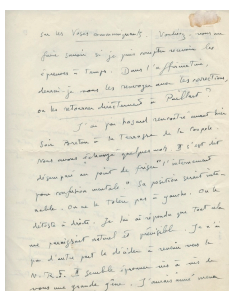 sur les Vases communicants. Voulez-vous me
faire savoir si je puis compter recevoir les
épreuves à temps. Dans l'affirmative,
devrai-je vous les renvoyer avec les corrections,
ou les retourner directement à Paillart ?
J'ai par hasard rencontré avant-hier
soir Breton à la terrasse de la Coupole.
Nous avons échangé quelques mots. Il s'est dit
au point de "l'internement
pour confusion mentale". Sa position serait
. On ne le tolère pas à gauche. On le
déteste à droite. Je lui ai répondu que tout cela
me paraissait naturel et . Je n'ai
pas d'autre part le décider à revenir vers la
N.R.F. Il semble éprouver vis à vis de
vous une grande gêne. J'aurais aimé